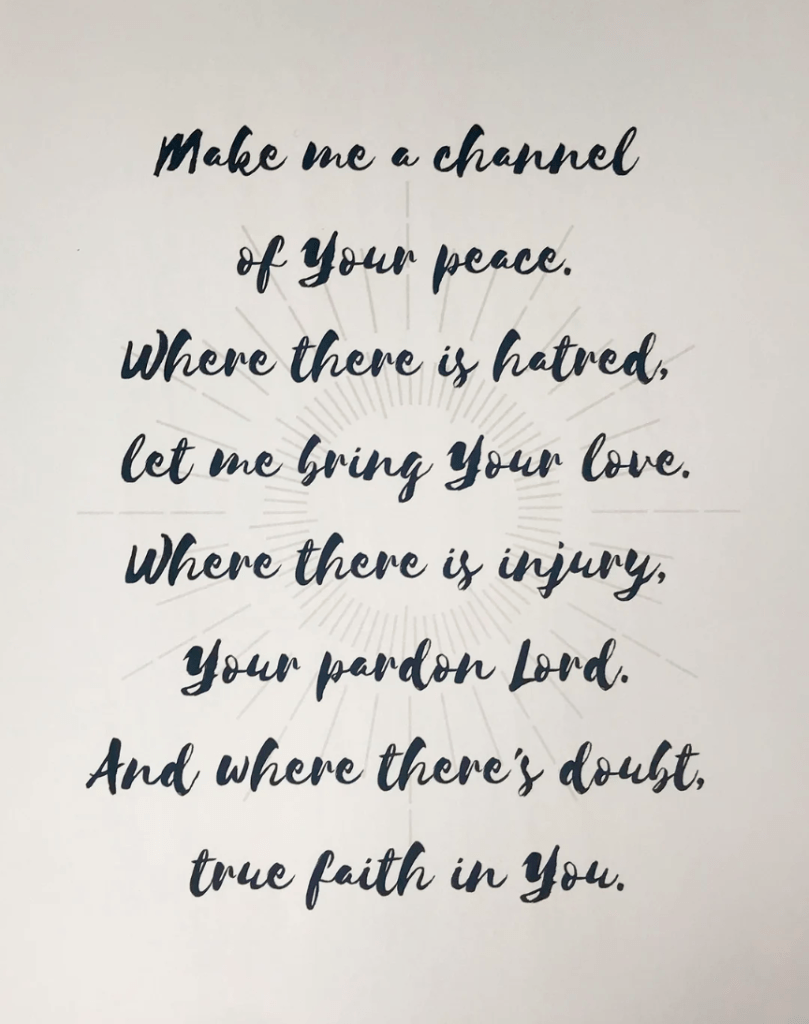 Make me a channel
of Your peace.
Where there is hatred,
let me bring Your love.
Where there is injury,
Your pardon Lord.
And where there's doubt,
true faith in You.